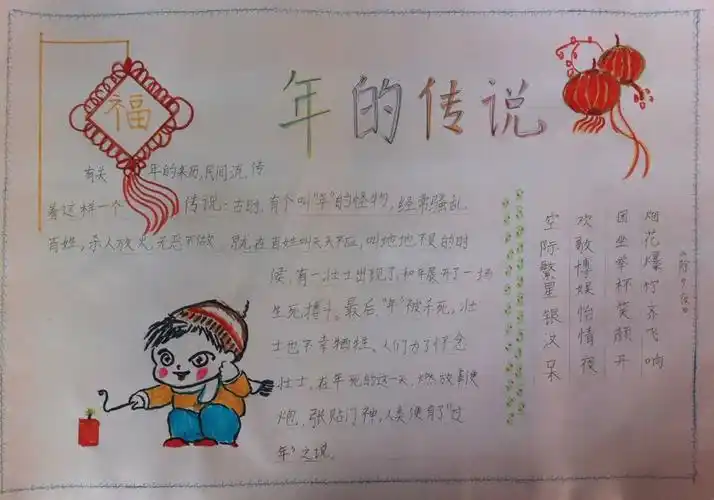 福
年的传说
有关 年的来历,民间流传
着这样一个 传说:古时,有个叫"年"的怪物,经常骚乱
百姓,杀人放火,无恶不做。就在百姓叫天天不应,叫地地不灵的时
候,有一壮士出现了,和年展开了一场
生死搏斗。最后,"年"被杀死,壮
士也不幸牺牲。人们为了怀念
壮士,在年死的这一天,燃放鞭
炮,张贴门神,人类便有了"过
年"之说。
《除夕夜》
烟花爆竹齐飞响
团坐举杯笑颜开
欢歌博娱怡情夜
空际繁星银汉呆